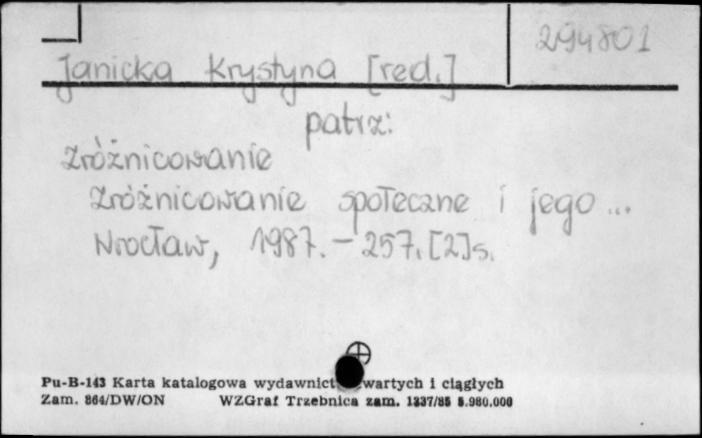 294801
Janicka Krystyna [red.]
patrz:
Zróżnicowanie
Zróżnicowanie społeczne i jego ...
Wrocław, 1987. – 257, [2] s.
Pu-B-143 Karta katalogowa wydawnict wartych i ciągłych
Zam. 864/DW/ON WZGraf Trzebnica zam. 1337/85 5.980.000